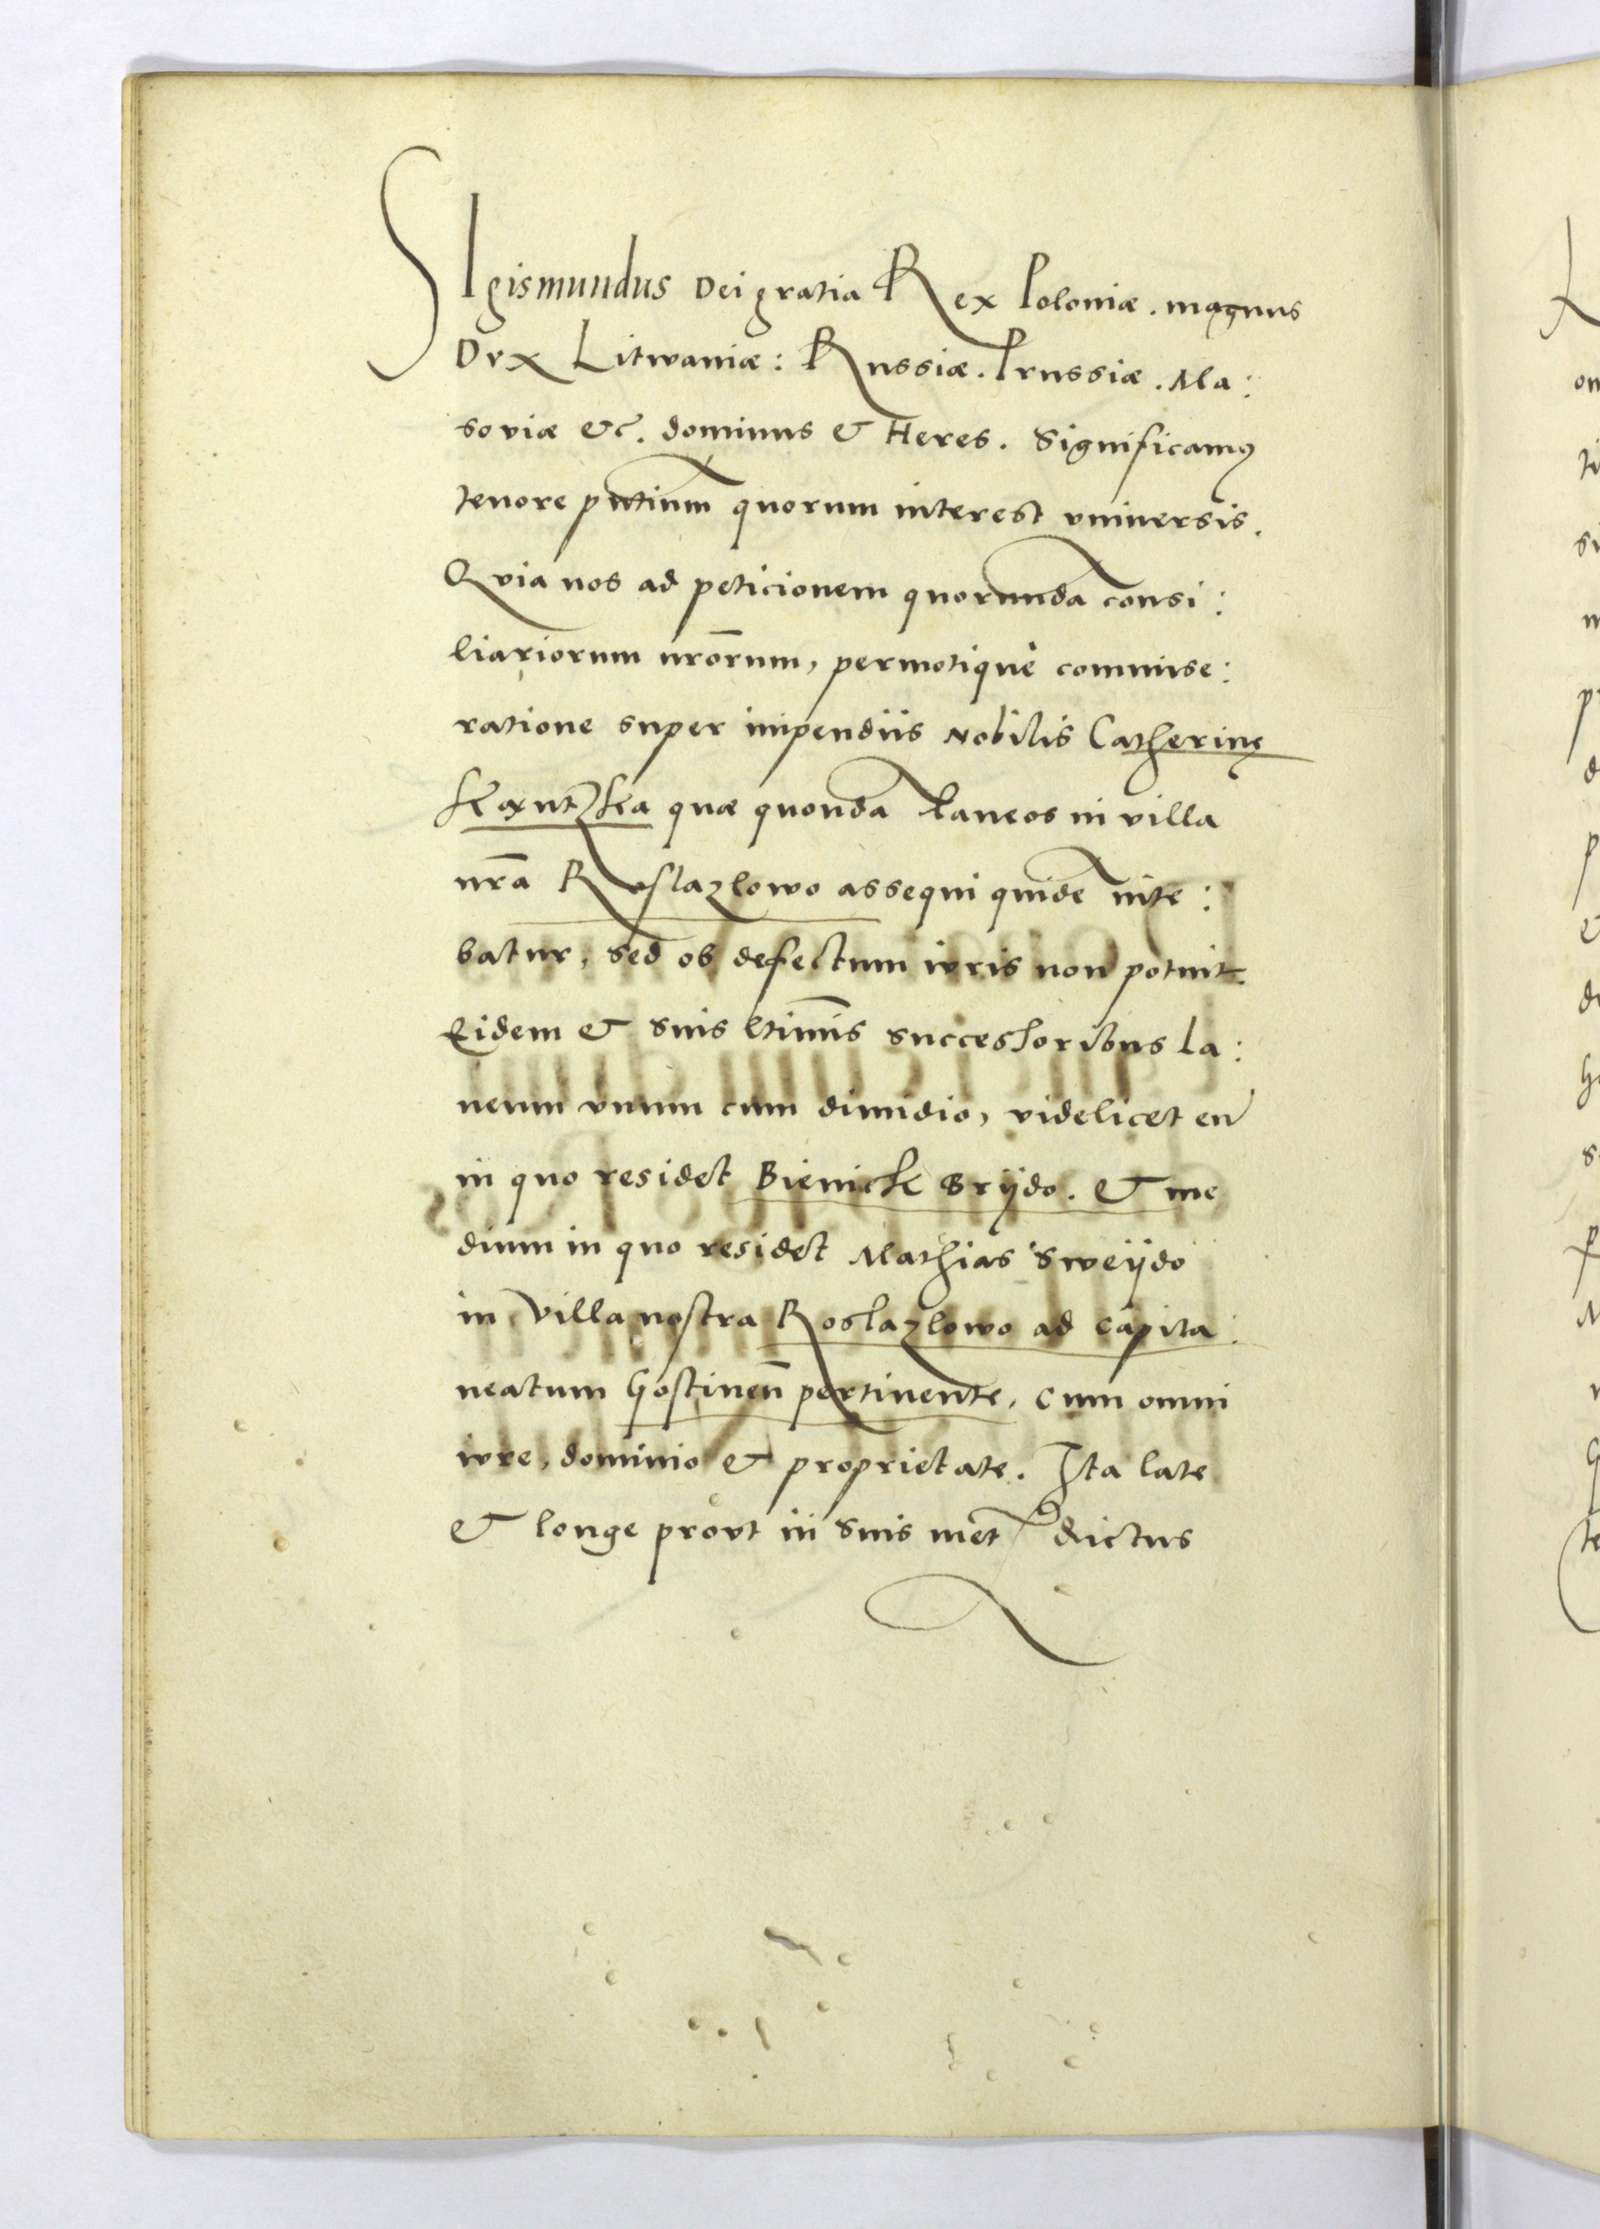 SIgismundus Dei gratia Rex Poloniæ . magnus
Dvx Litwaniæ : Russiæ . Prussiæ . Ma :
soviæ &c . dominus & Heres . Significamꝰ
tenore pñtium quorum interest vniuersis .
Qvia nos ad peticionem quorundã consi :
liariorum nrõrum , permotique commise :
ratione super impendiis Nobilis Catherinę
quæ quondã laneos in villa
nrã Roslazlowo assequi quidẽ nite :
batur , sed ob defectum ivris non potuit .
Eidem & suis ltimis successoribus la :
neum vnum cum dimidio , videlicet eñ
in quo residet Bienick Brÿdo . & me
dium in quo residet Mathias Sweÿdo
in villa nostra Roslazlowo ad Capita :
neatum Gostineñ pertinente , cum omni
ivre , dominio & proprietate . Ita late
& longe provt in suis met dictus